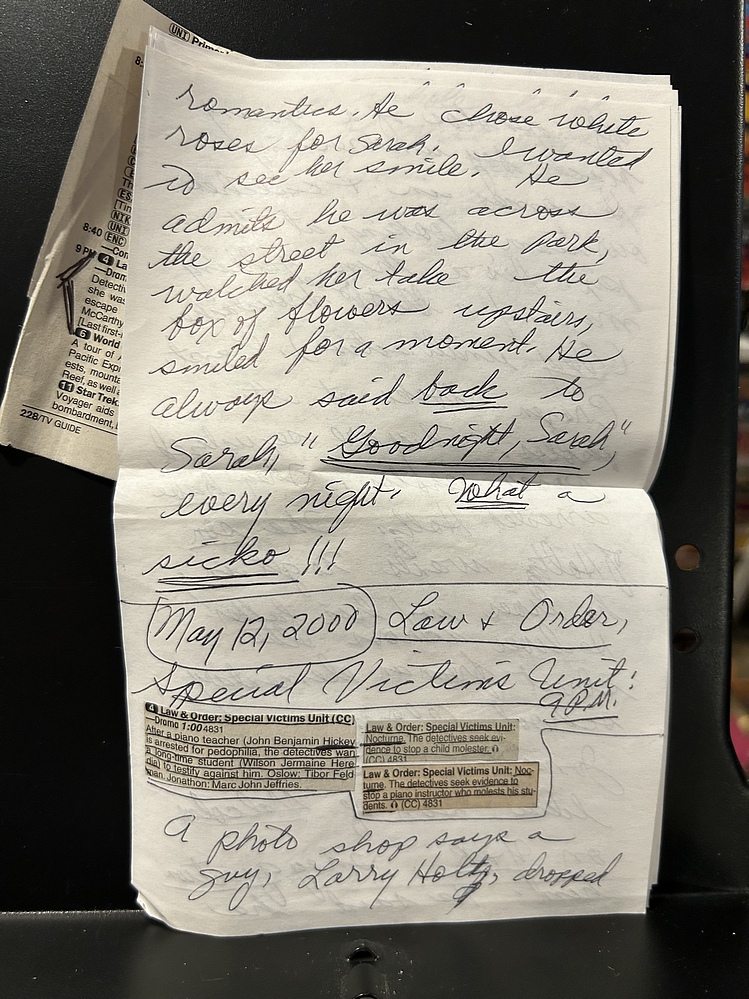 (UNI) Prime
8:40 (ENC)
9 PM 4 La
—Dram
Detecti
she was
escape
McCarthy
[Last first-
6 World
A tour of
Pacific Exp
ests, mounta
Reef, as well a
11 Star Trek
Voyager aids
bombardment.
228/TV GUIDE
romantics. He chose white
roses for Sarah. I wanted
to see her smile. He
admits he was across
the street in the park,
watched her take the
box of flowers upstairs,
smiled for a moment. He
always said back to
Sarah, "Goodnight, Sarah,"
every night. What a
sicko!!!
May 12, 2000 Law & Order,
Special Victims Unit:
9 P.M.
4 Law & Order: Special Victims Unit (CC)
—Drama 1:00 4831
After a piano teacher (John Benjamin Hickey
is arrested for pedophilia, the detectives wan
a long-time student (Wilson Jermaine Here
dia) to testify against him. Oslow: Tibor Feld
man. Jonathon: Marc John Jeffries.
Law & Order: Special Victims Unit:
Nocturne. The detectives seek evi-
dence to stop a child molester.
(CC) 4831
Law & Order: Special Victims Unit: Noc-
turne. The detectives seek evidence to
stop a piano instructor who molests his stu-
dents. (CC) 4831
A photo shop says a
guy, Larry Holtz, dropped